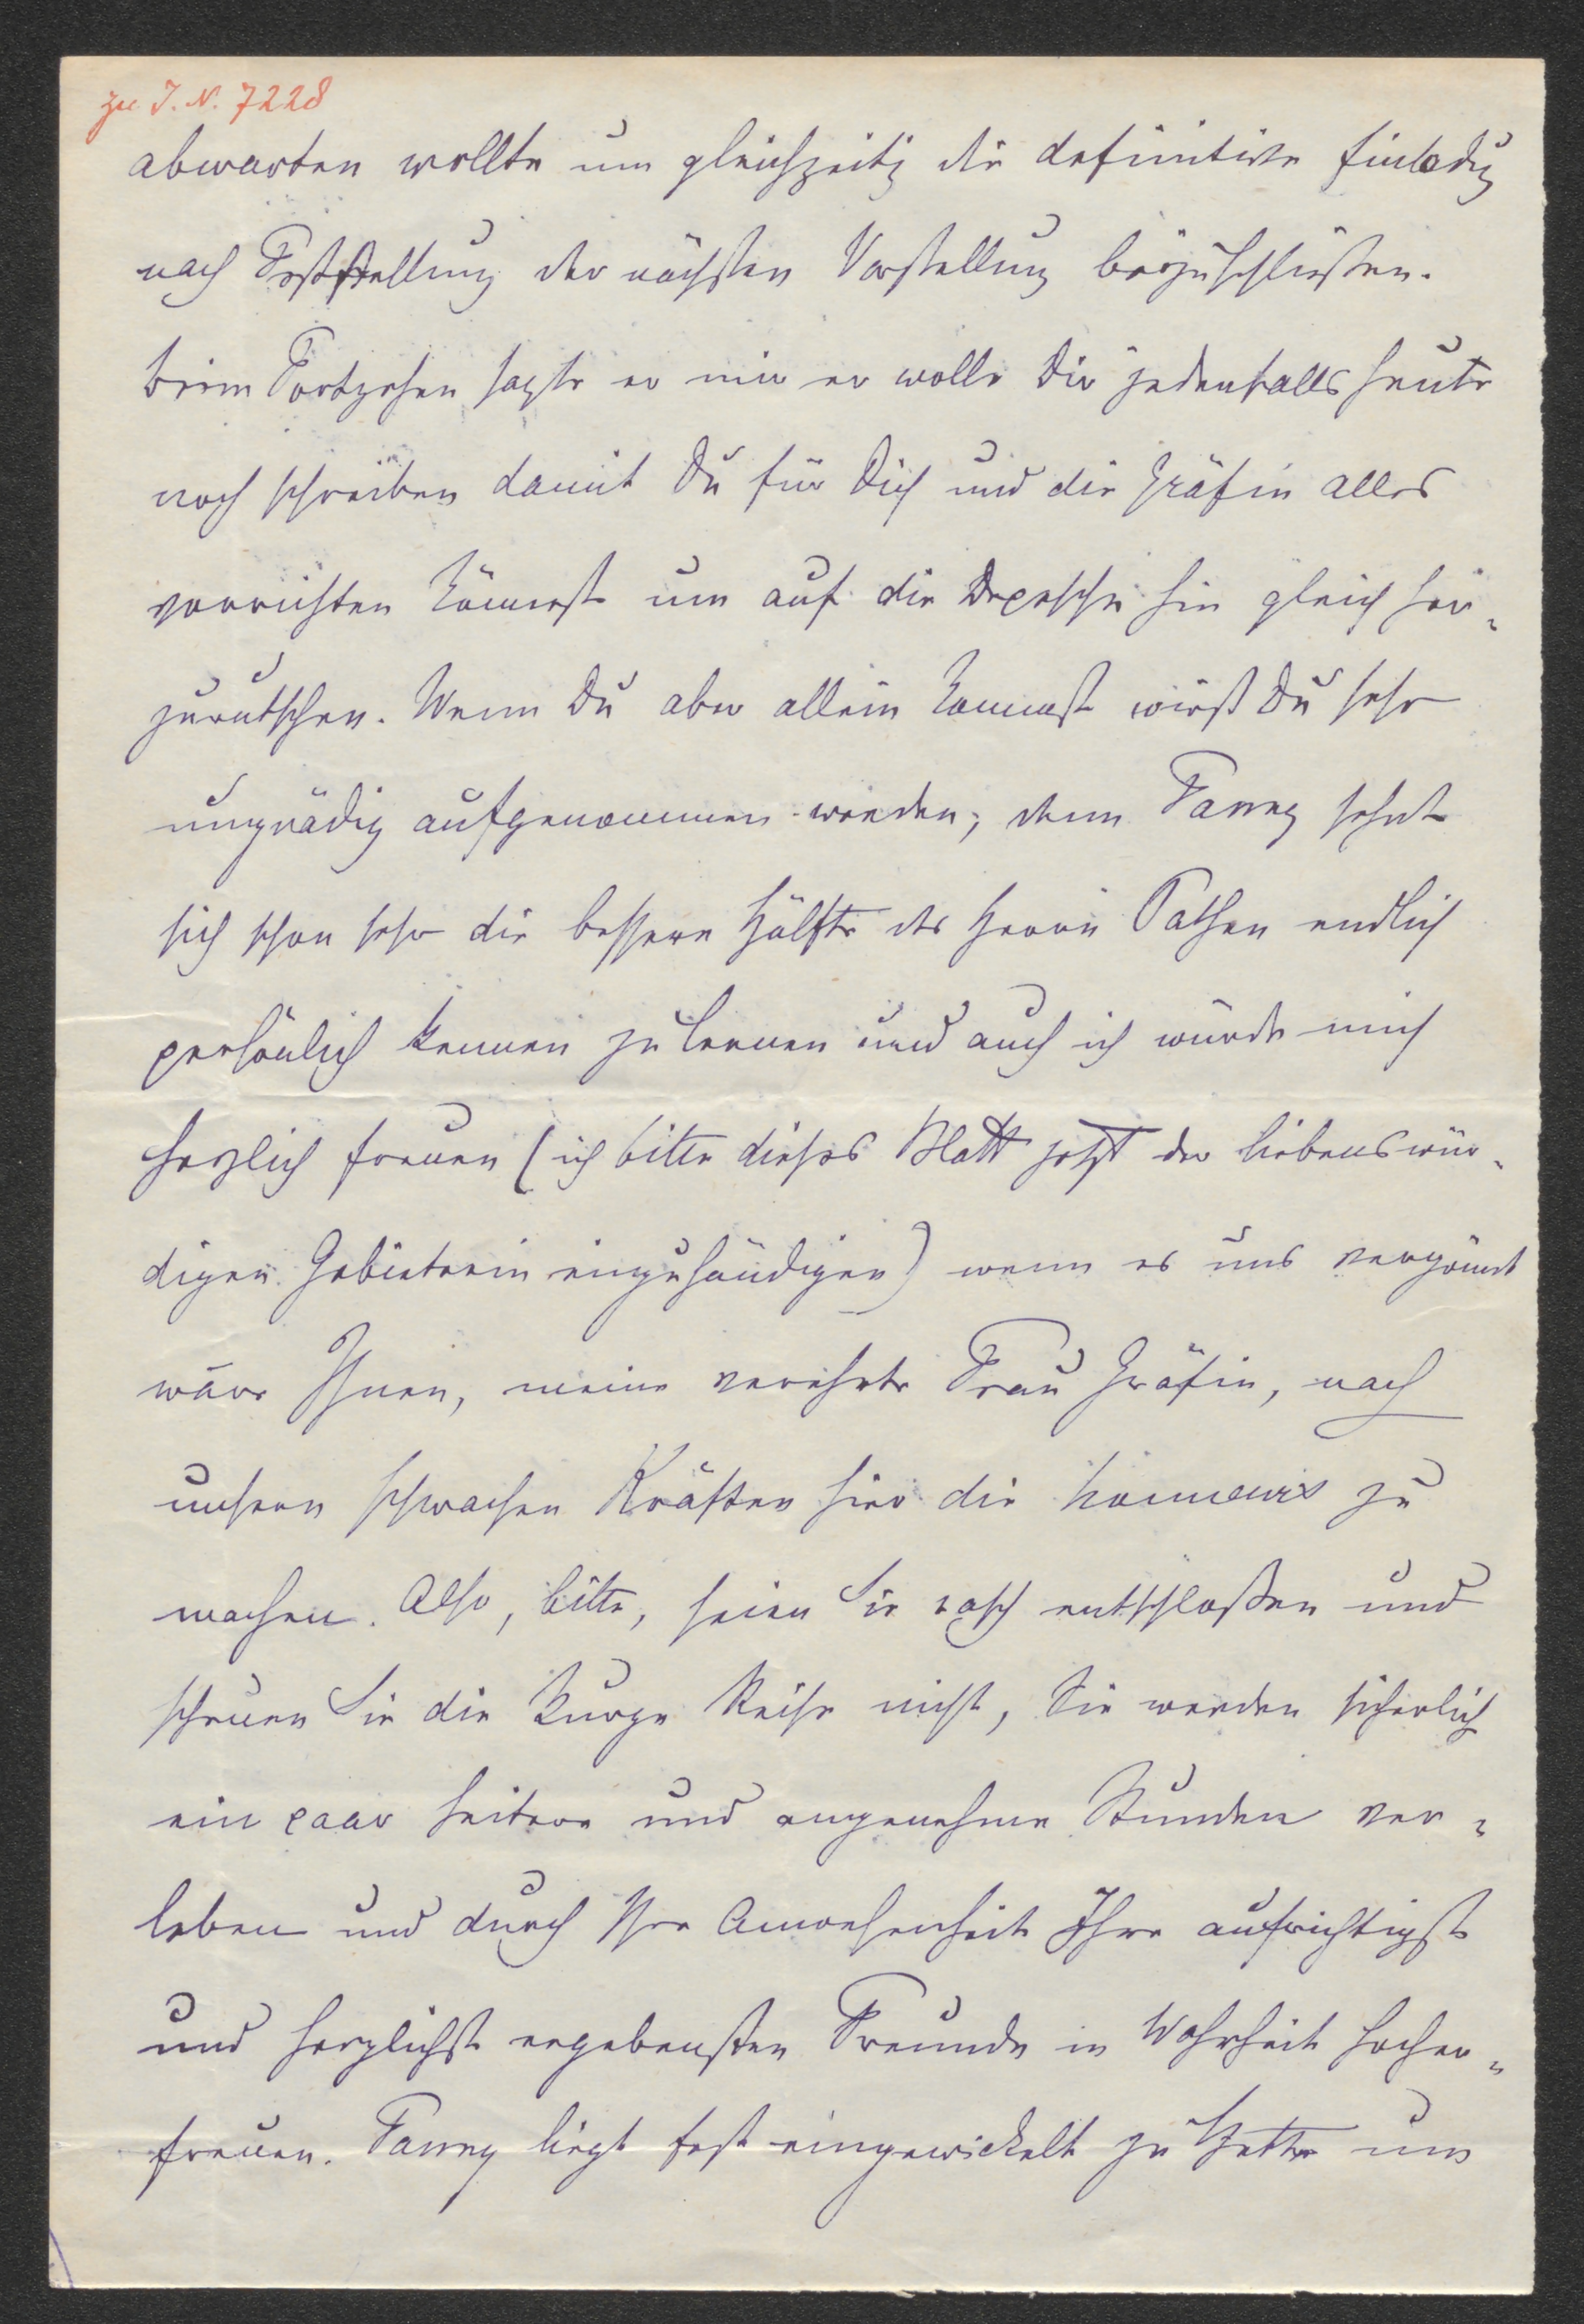 zu I. N. 7228
abwarten wollte um gleichzeitig die definitive Einladg
nach Feststellung der nächsten Vorstellung beizuschließen.
Beim Fortgehen sagte er mir er wolle Dir jedenfalls heute
noch schreiben damit Du für Dich und die Gräfin alles
vorrichten könnest um auf die Depesche hin gleich her-
zurutschen. Wenn Du aber allein kommst wirst Du sehr
ungnädig aufgenommen werden; denn Fanny sehnt
sich schon sehr die bessere Hälfte des Herrn Pathen endlich
persönlich kennen zu lernen und auch ich würde mich
herzlich freuen (ich bitte dieses Blatt jetzt der liebenswür-
digen Gebieterin einzuhändigen) wenn es uns vergönnt
wäre Ihnen, meine verehrte Frau Gräfin, nach
unsern schwachen Kräften hier die honneurs zu
machen. Also, bitte, seien Sie rasch entschloßen und
scheuen Sie die kurze Reise nicht, Sie werden sicherlich
ein paar heitere und angenehme Stunden ver-
leben und durch Ihre Anwesenheit Ihre aufrichtigst
und herzlichst ergebensten Freunde in Wahrheit hocher-
freuen. Fanny liegt fest eingewickelt zu Bette um